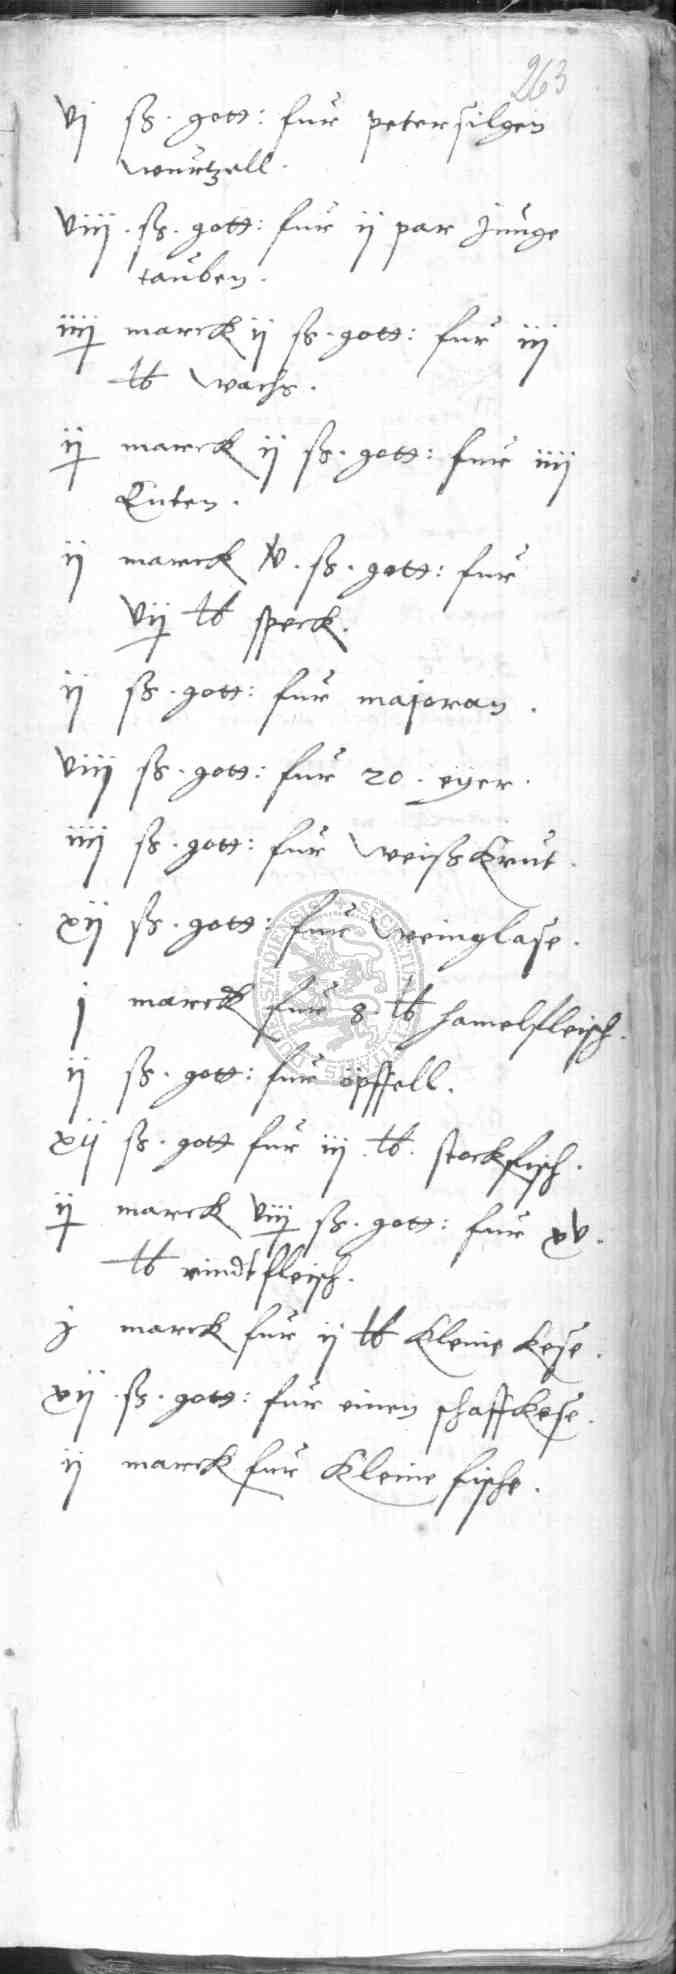 263
vj ß. gott: fur petersilgen
wurtzell.
viij. ß. gott: fur ij par junge
tauben.
iiij marck ij ß. gott: fur iij
℔ wachs.
ij marck ij ß. gott: fur iiij
Enten.
ij marck v. ß. gott: fur
vij ℔ speck.
ij ß. gott: fur majoran.
viij ß. gott: fur 20. eyer.
iiij ß. gott: fur weißkrut.
xij ß. gott: fur weinglase.
j marck fur 8 ℔ hamelfleisch.
ij ß. gott: fur öpffell.
xij ß. gott fur iij. ℔. stockfisch.
ij marck viij ß. gott: fur xv.
℔ rindtfleisch.
j marck fur ij ℔ kleine kese.
xij. ß. gott: fur einen schaffkese.
ij marck fur kleine fische.